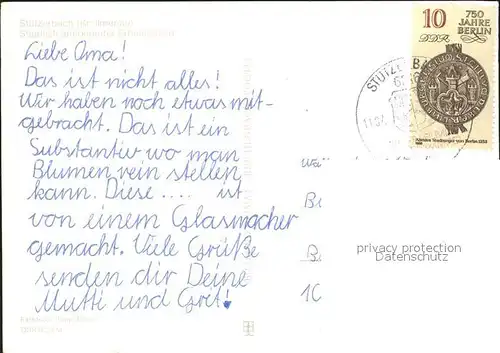 Stützerbach Kr. Ilmenau
Staatlich anerkannter Erholungsort
Liebe Oma!
Das ist nicht alles!
Wir haben noch etwas mit-
gebracht. Das ist ein
Substantiv wo man
Blumen rein stellen
kann. Diese .... ist
von einem Glasmacher
gemacht. Viele Grüße
senden dir Deine
Mutti und Grit!
10
750
JAHRE
BERLIN
DDR
Ältestes Stadtsiegel von Berlin 1253
STÜTZE
privacy protection
Datenschutz